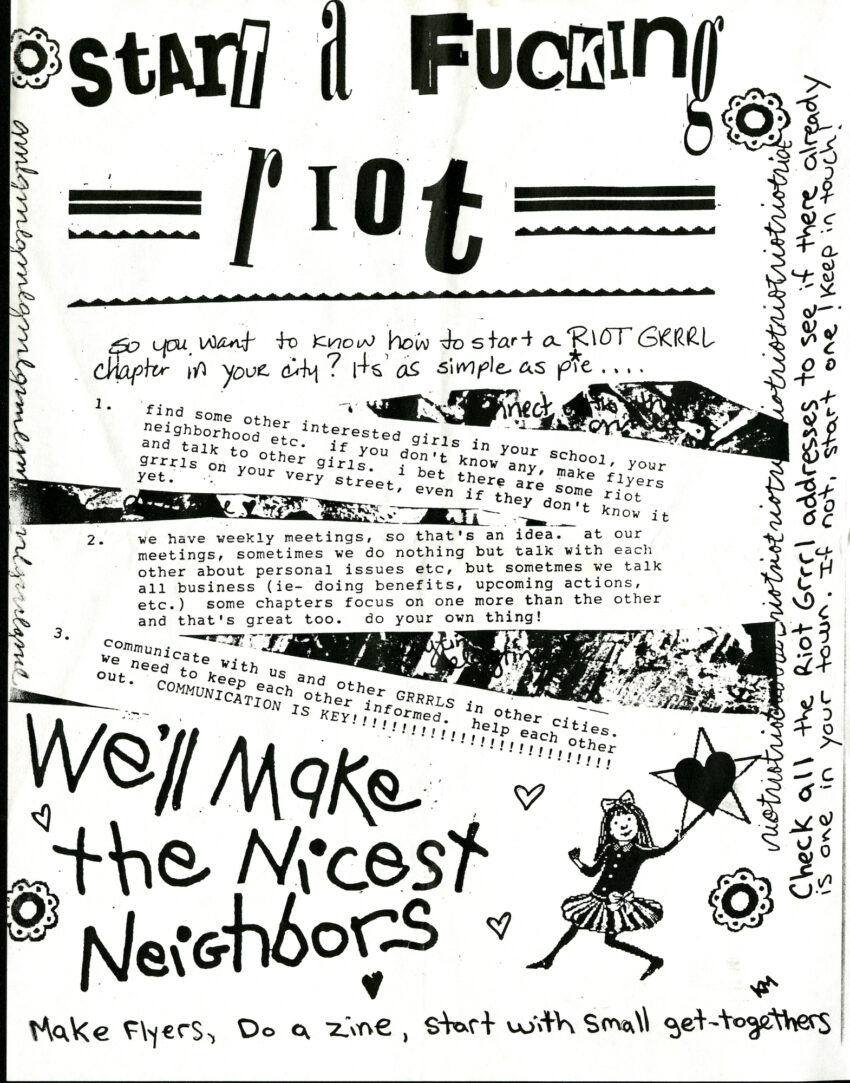 START a FUCKINg
rIOt
so you want to know how to start a RIOT GRRRL
chapter in your city? Its' as simple as p*e....
1. find some other interested girls in your school, your
neighborhood etc. if you don't know any, make flyers
and talk to other girls. i bet there are some riot
grrrls on your very street, even if they don't know it
yet.
2. we have weekly meetings, so that's an idea. at our
meetings, sometimes we do nothing but talk with each
other about personal issues etc, but sometmes we talk
all business (ie- doing benefits, upcoming actions,
etc.) some chapters focus on one more than the other
and that's great too. do your own thing!
3. communicate with us and other GRRRLS in other cities.
we need to keep each other informed. help each other
out. COMMUNICATION IS KEY!!!!!!!!!!!!!!!!!!!!!!!!!!!
We'll Make
the Nicest
Neighbors
Make Flyers, Do a zine, start with small get-togethers
KM
riotriotriotriotriotriotriotriotriotriotriotriotriotriot
Check all the Riot Grrrl addresses to see if there already
is one in your town. If not, start one! Keep in touch!